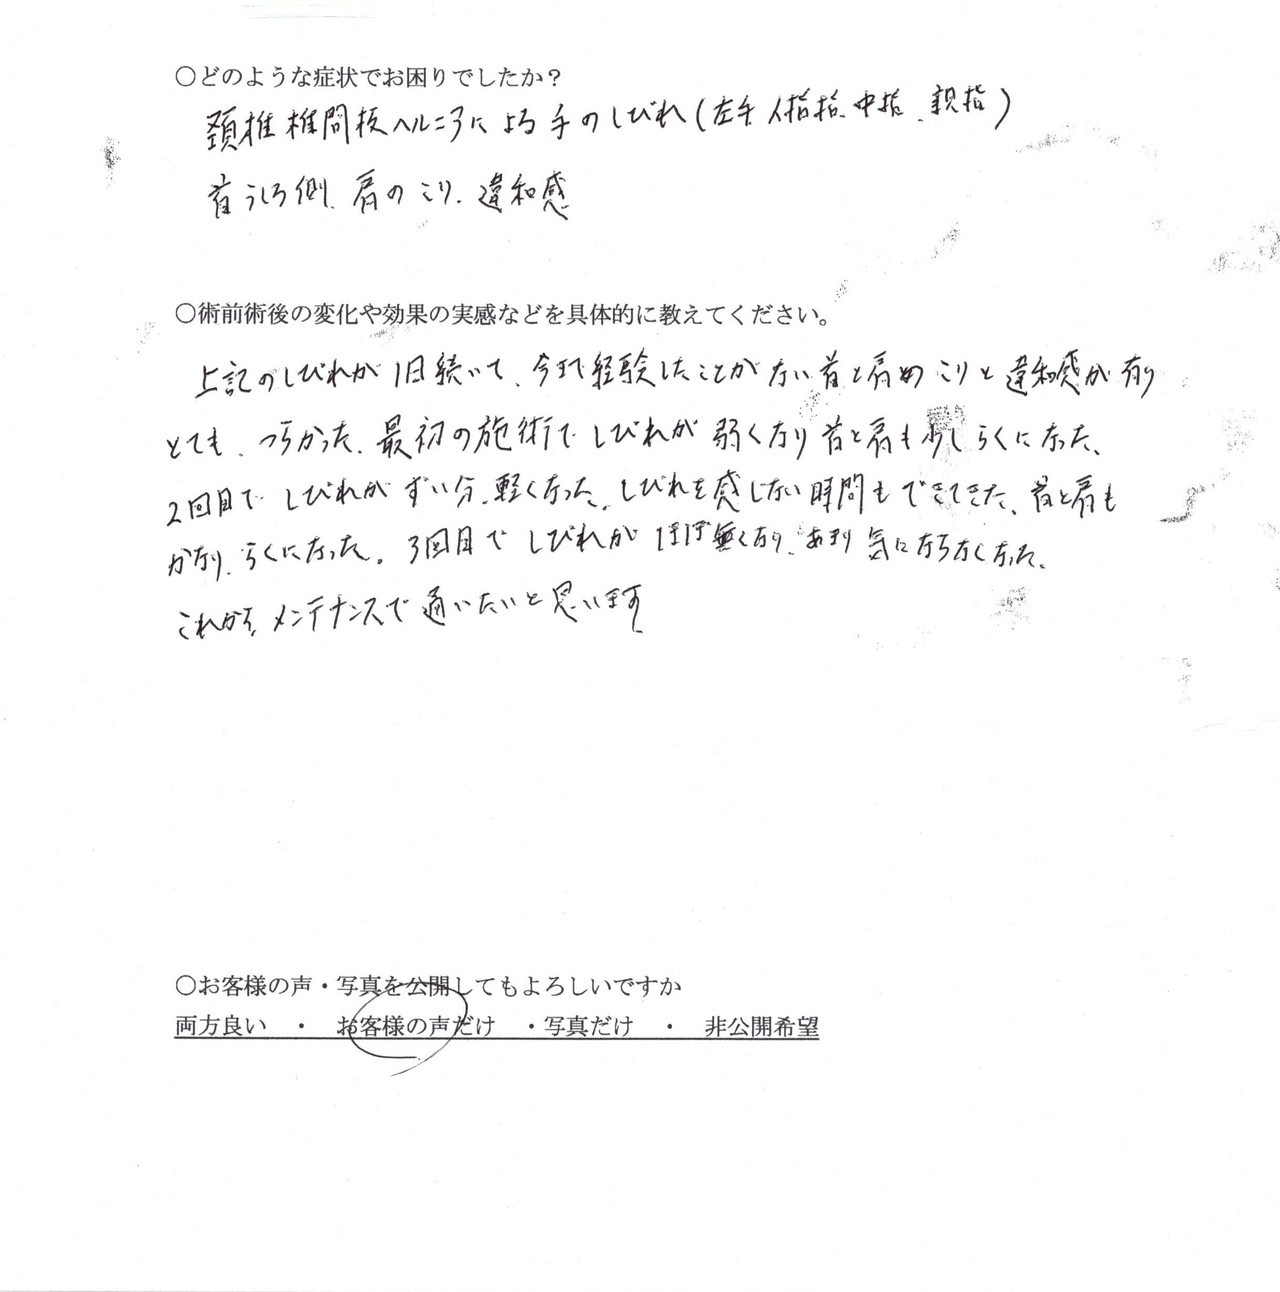 ○どのような症状でお困りでしたか？
頚椎椎間板ヘルニアによる手のしびれ(左手人指指、中指、親指)
首うしろ側、肩のこり、違和感
○術前術後の変化や効果の実感などを具体的に教えてください。
上記のしびれが1日続いて、今まで経験したことがない首と肩のこりと違和感が有り
とても、つらかった、最初の施術でしびれが弱くなり首と肩も少しらくになった、
2回目でしびれがずい分、軽くなった、しびれを感じない時間もできてきた、首と肩も
かなり、らくになった。3回目でしびれがほぼ無くなり、あまり気にならなくなった、
これから、メンテナンスで通いたいと思います
○お客様の声・写真を公開してもよろしいですか
両方良い　・　お客様の声だけ　・写真だけ　・　非公開希望